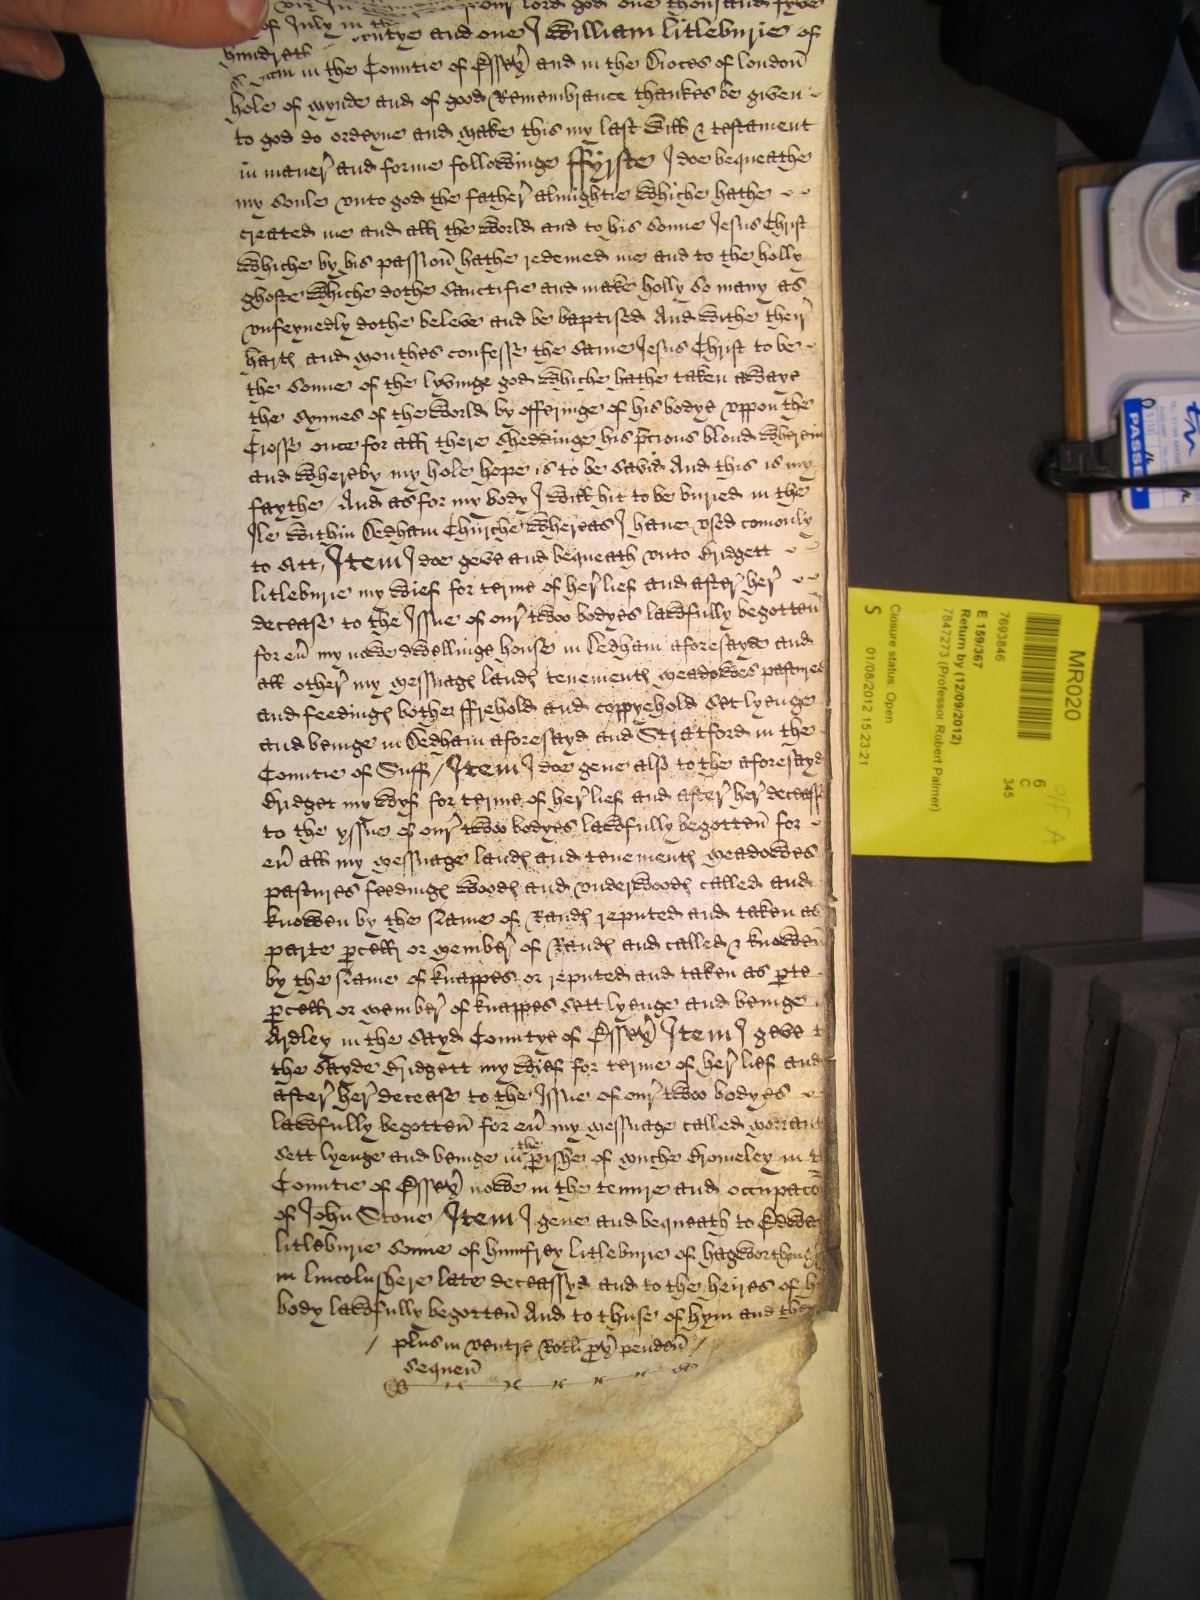 our lord god one thousand fyve
of July in the
hundreth seventye and one I William Litleburie of
in the Countie of Essex and in the Dioces of london
hole of mynde and of good Remembrance thankes be given
to god do ordeyne and make this my last Will & testament
in maner and forme followinge ffyrste I doe bequeathe
my soule vnto god the father almightie whiche hathe
created me and all the world and to his sonne Jesus Christ
whiche by his passion hathe redemed me and to the holly
ghoste whiche dothe sanctifie and make holly so many as
vnfeynedly dothe beleve and be baptised And withe their
hart and mouthes confesse the same Jesus Christ to be
the sonne of the lyvinge god whiche hathe taken awaye
the synnes of the world by offeringe of his bodye vppon the
Crosse once for all there sheddinge his pcious bloud wherein
and whereby my hole hope is to be savid And this is my
faythe / And as for my body I will hit to be buried in the
Ile within Dedham Churche whereas I have vsed comonly
to sitt, Item I doe geve and bequeath vnto Bridgett
litleburie my wief for terme of her lief and after her
decease to the Issue of our twoo bodyes lawfully begotten
for eu my nowe dwellinge house in Dedham aforesayde and
all other my messuages landes tenementes meadowes pastures
and feedinges bothe ffrehold and coppyehold sett lyenge
and beinge in Dedham aforesayd and Stratford in the
Countie of Suff / Item I doe geue also to the aforesayd
Bridget my wyf for terme of her lief and after her decease
to the yssue of our twoo bodyes lawfully begotten for
eu all my messuage landes and tenementes meadowes
pastures feedinges woodes and vnderwoodes called and
knowen by the name of Randes reputed and taken as
parte pcell or member of Randes and called & knowen
by the name of knappes or reputed and taken as pte
pcell or member of knappes sett lyenge and beinge
Ardley in the sayd Countye of Essex Item I geve t
the sayde Bridgett my wief for terme of her lief and
after her decease to the Issue of our twoo bodyes
lawfully begotten for eu my messuage called
sett lyenge and beinge in the pishe of muche Bromeley in t
Countie of Essex nowe in the tenure and occupaco
of John Stone / Item I geue and bequeath to Edwar
litleburie sonne of humfrey litleburie of
in lincolnshere late deceassyd and to the heires of h
body lawfully begotten And to thuse of hym and
/ plus in ventre Rotli penden /
sequen
MR020
6
C
345
7693846
E 159/367
Return by (12/09/2012)
7847273 (Professor Robert Palmer)
Closure status: Open
S 01/08/2012 15:23:21
PASSE